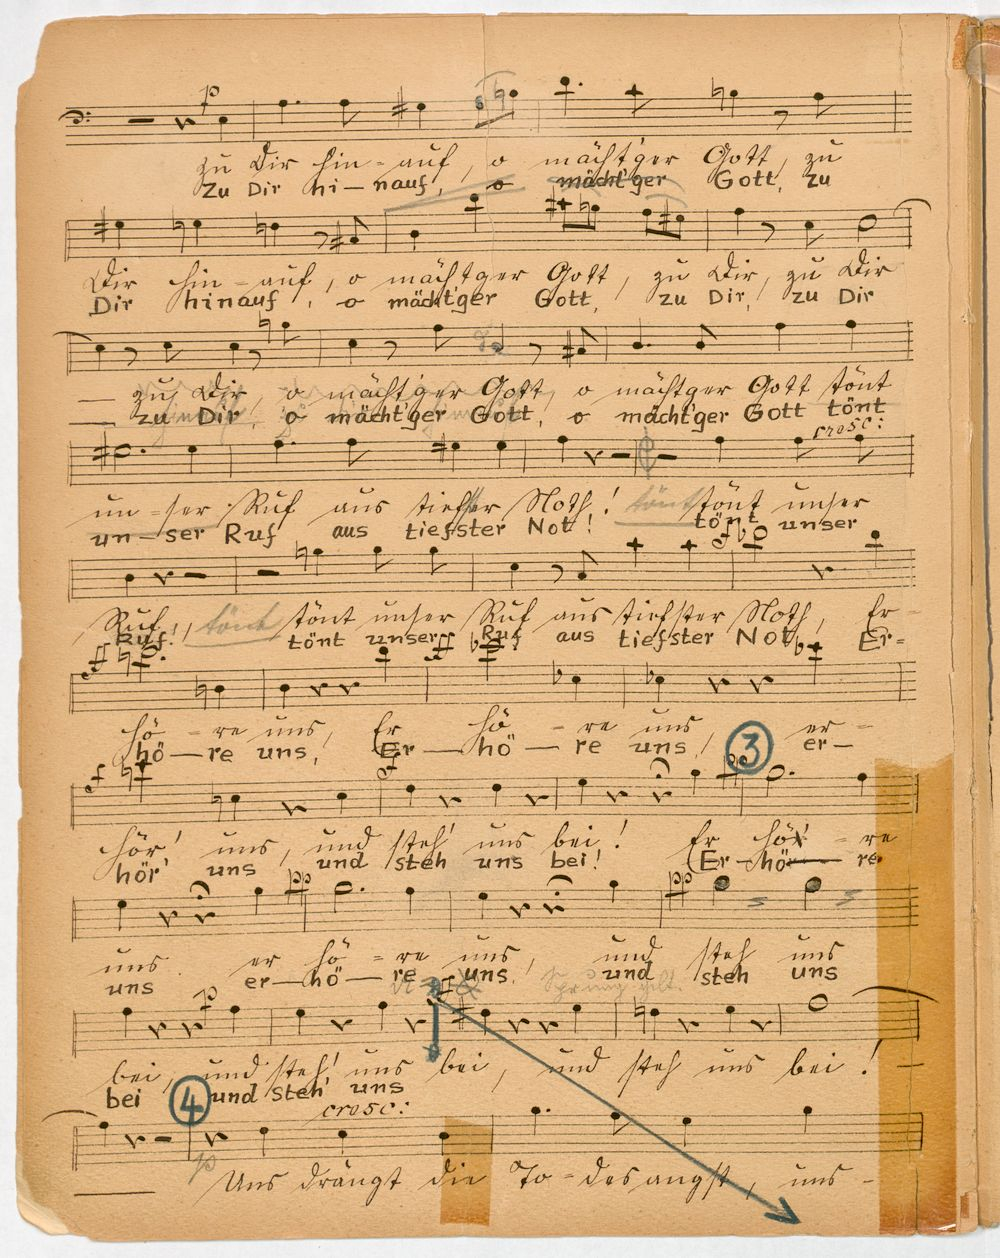 p
zu Dir hin-auf, o mächt'ger Gott, zu
zu Dir hi—nauf, o mächt'ger Gott, zu
Dir hin-auf, o mächt'ger Gott, zu Dir, zu Dir
Dir hinauf, o mächt'ger Gott, zu Dir, zu Dir
— zu Dir, o mächt'ger Gott, o mächt'ger Gott tönt
— zu Dir, o mächt'ger Gott, o mächt'ger Gott tönt
cresc:
un-ser Ruf aus tiefster Noth! tönt tönt unser
un—ser Ruf aus tiefster Not! tönt unser
ff
Ruf, tönt tönt unser Ruf aus tiefster Noth, Er-
Ruf! tönt unser Ruf aus tiefster Not, Er-
ff ff
hö-re uns, Er hö-re uns, er-
hö—re uns, Er—hö—re uns, er—
3
ff ff pp
hör' uns, und steh' uns bei! Er hö-re
hör' uns und steh uns bei! Er—hö—re
pp pp
uns er hö-re uns, und steh uns
uns er—hö—re uns, und steh uns
Sprung gilt.
p ff
bei, und steh' uns bei, und steh uns bei!
bei und steh' uns
4
cresc:
p
Uns drängt die To-des angst, uns-